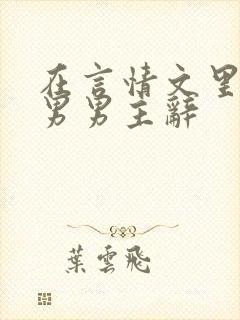 在言情文里
男男主辭
葉雲飛